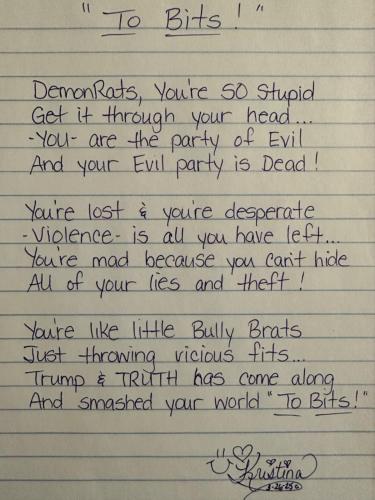 "To Bits!"
DemonRats, You're SO Stupid
Get it through your head...
-YOU- are the party of Evil
And your Evil party is Dead!
You're lost & you're desperate
-Violence- is all you have left...
You're mad because you can't hide
All of your lies and theft!
You're like little Bully Brats
Just throwing vicious fits...
Trump & TRUTH has come along
And smashed your world "To Bits!"
Kristina